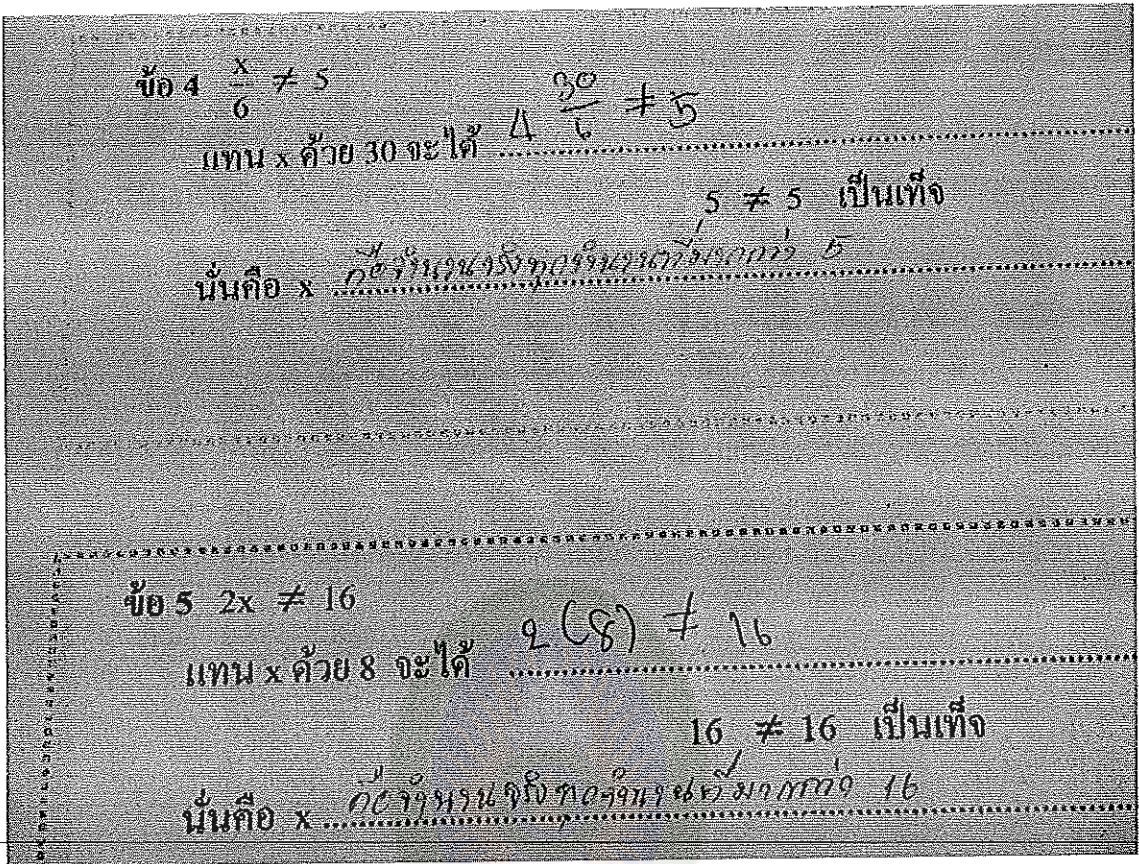 ข้อ 4 x/6 ≠ 5
แทน x ด้วย 30 จะได้ 30/6 ≠ 5
5 ≠ 5 เป็นเท็จ
นั่นคือ x คือจำนวนจริงทุกจำนวนที่มากกว่า 5
ข้อ 5 2x ≠ 16
แทน x ด้วย 8 จะได้ 2(8) ≠ 16
16 ≠ 16 เป็นเท็จ
นั่นคือ x คือจำนวนจริงทุกจำนวนที่มากกว่า 16